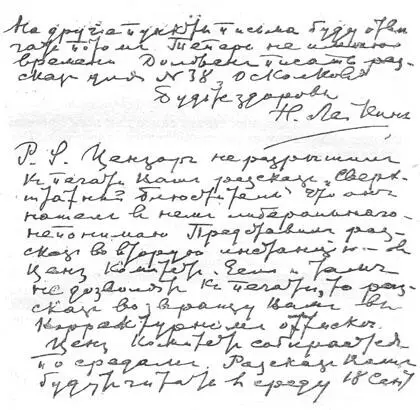 На другие пункты письма буду отве
чать потом. Теперь не имею
времени. Должен писать раз-
сказ для N 38 Осколковъ
Будьте здоровы
Н. Лейкинъ
P. S. Цензоръ не разрешилъ
къ печати Вашъ разсказъ „Сверх-
штатный блюститель“. Что онъ
нашелъ в немъ либеральнаго -
не понимаю. Представилъ раз-
сказъ во вторую инстанцію - въ
Ценз. Комитетъ. Если и тамъ
не дозволятъ къ печати, то раз-
сказъ возвращу Вамъ въ
корректурномъ оттиске.
Ценз. Комитетъ собирается
по средамъ. Разсказъ Вашъ
будутъ читать въ среду 18 сент